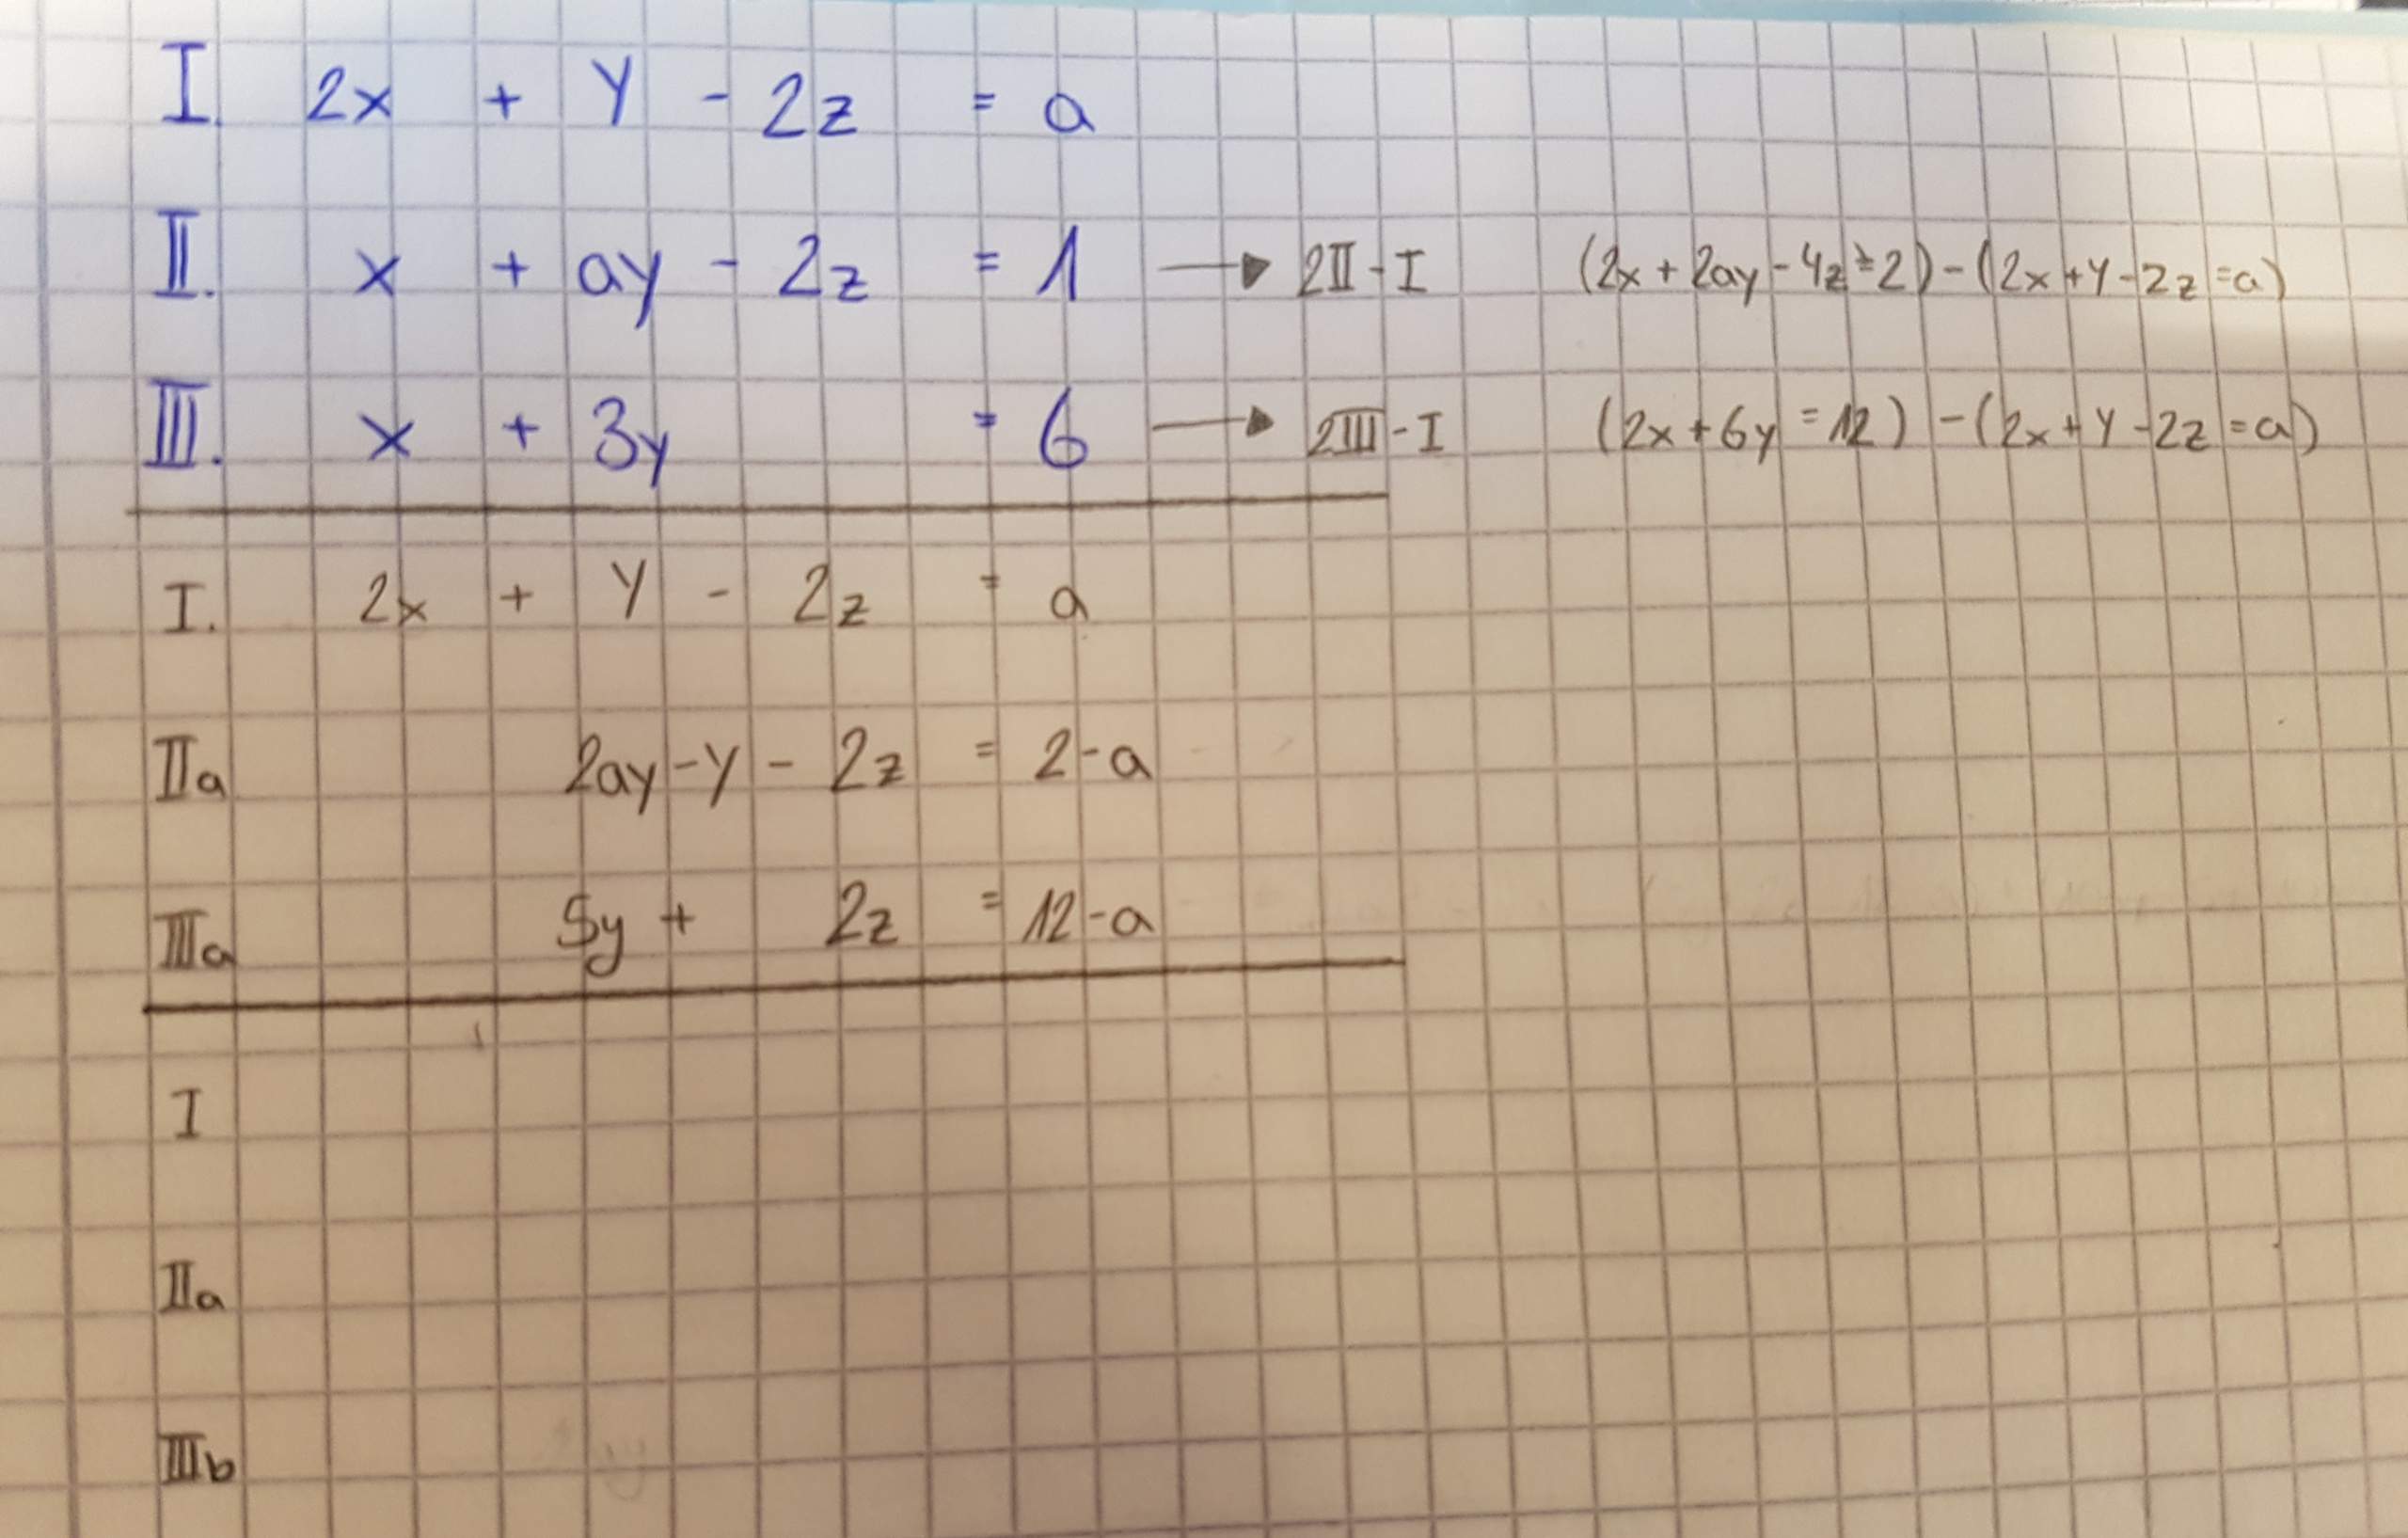 I. 2x + y - 2z = a
II. x + ay - 2z = 1 → 2II - I (2x + 2ay - 4z = 2) - (2x + y - 2z = a)
III. x + 3y = 6 → 2III - I (2x + 6y = 12) - (2x + y - 2z = a)
I. 2x + y - 2z = a
IIa 2ay - y - 2z = 2 - a
IIIa 5y + 2z = 12 - a
I
IIa
IIIb